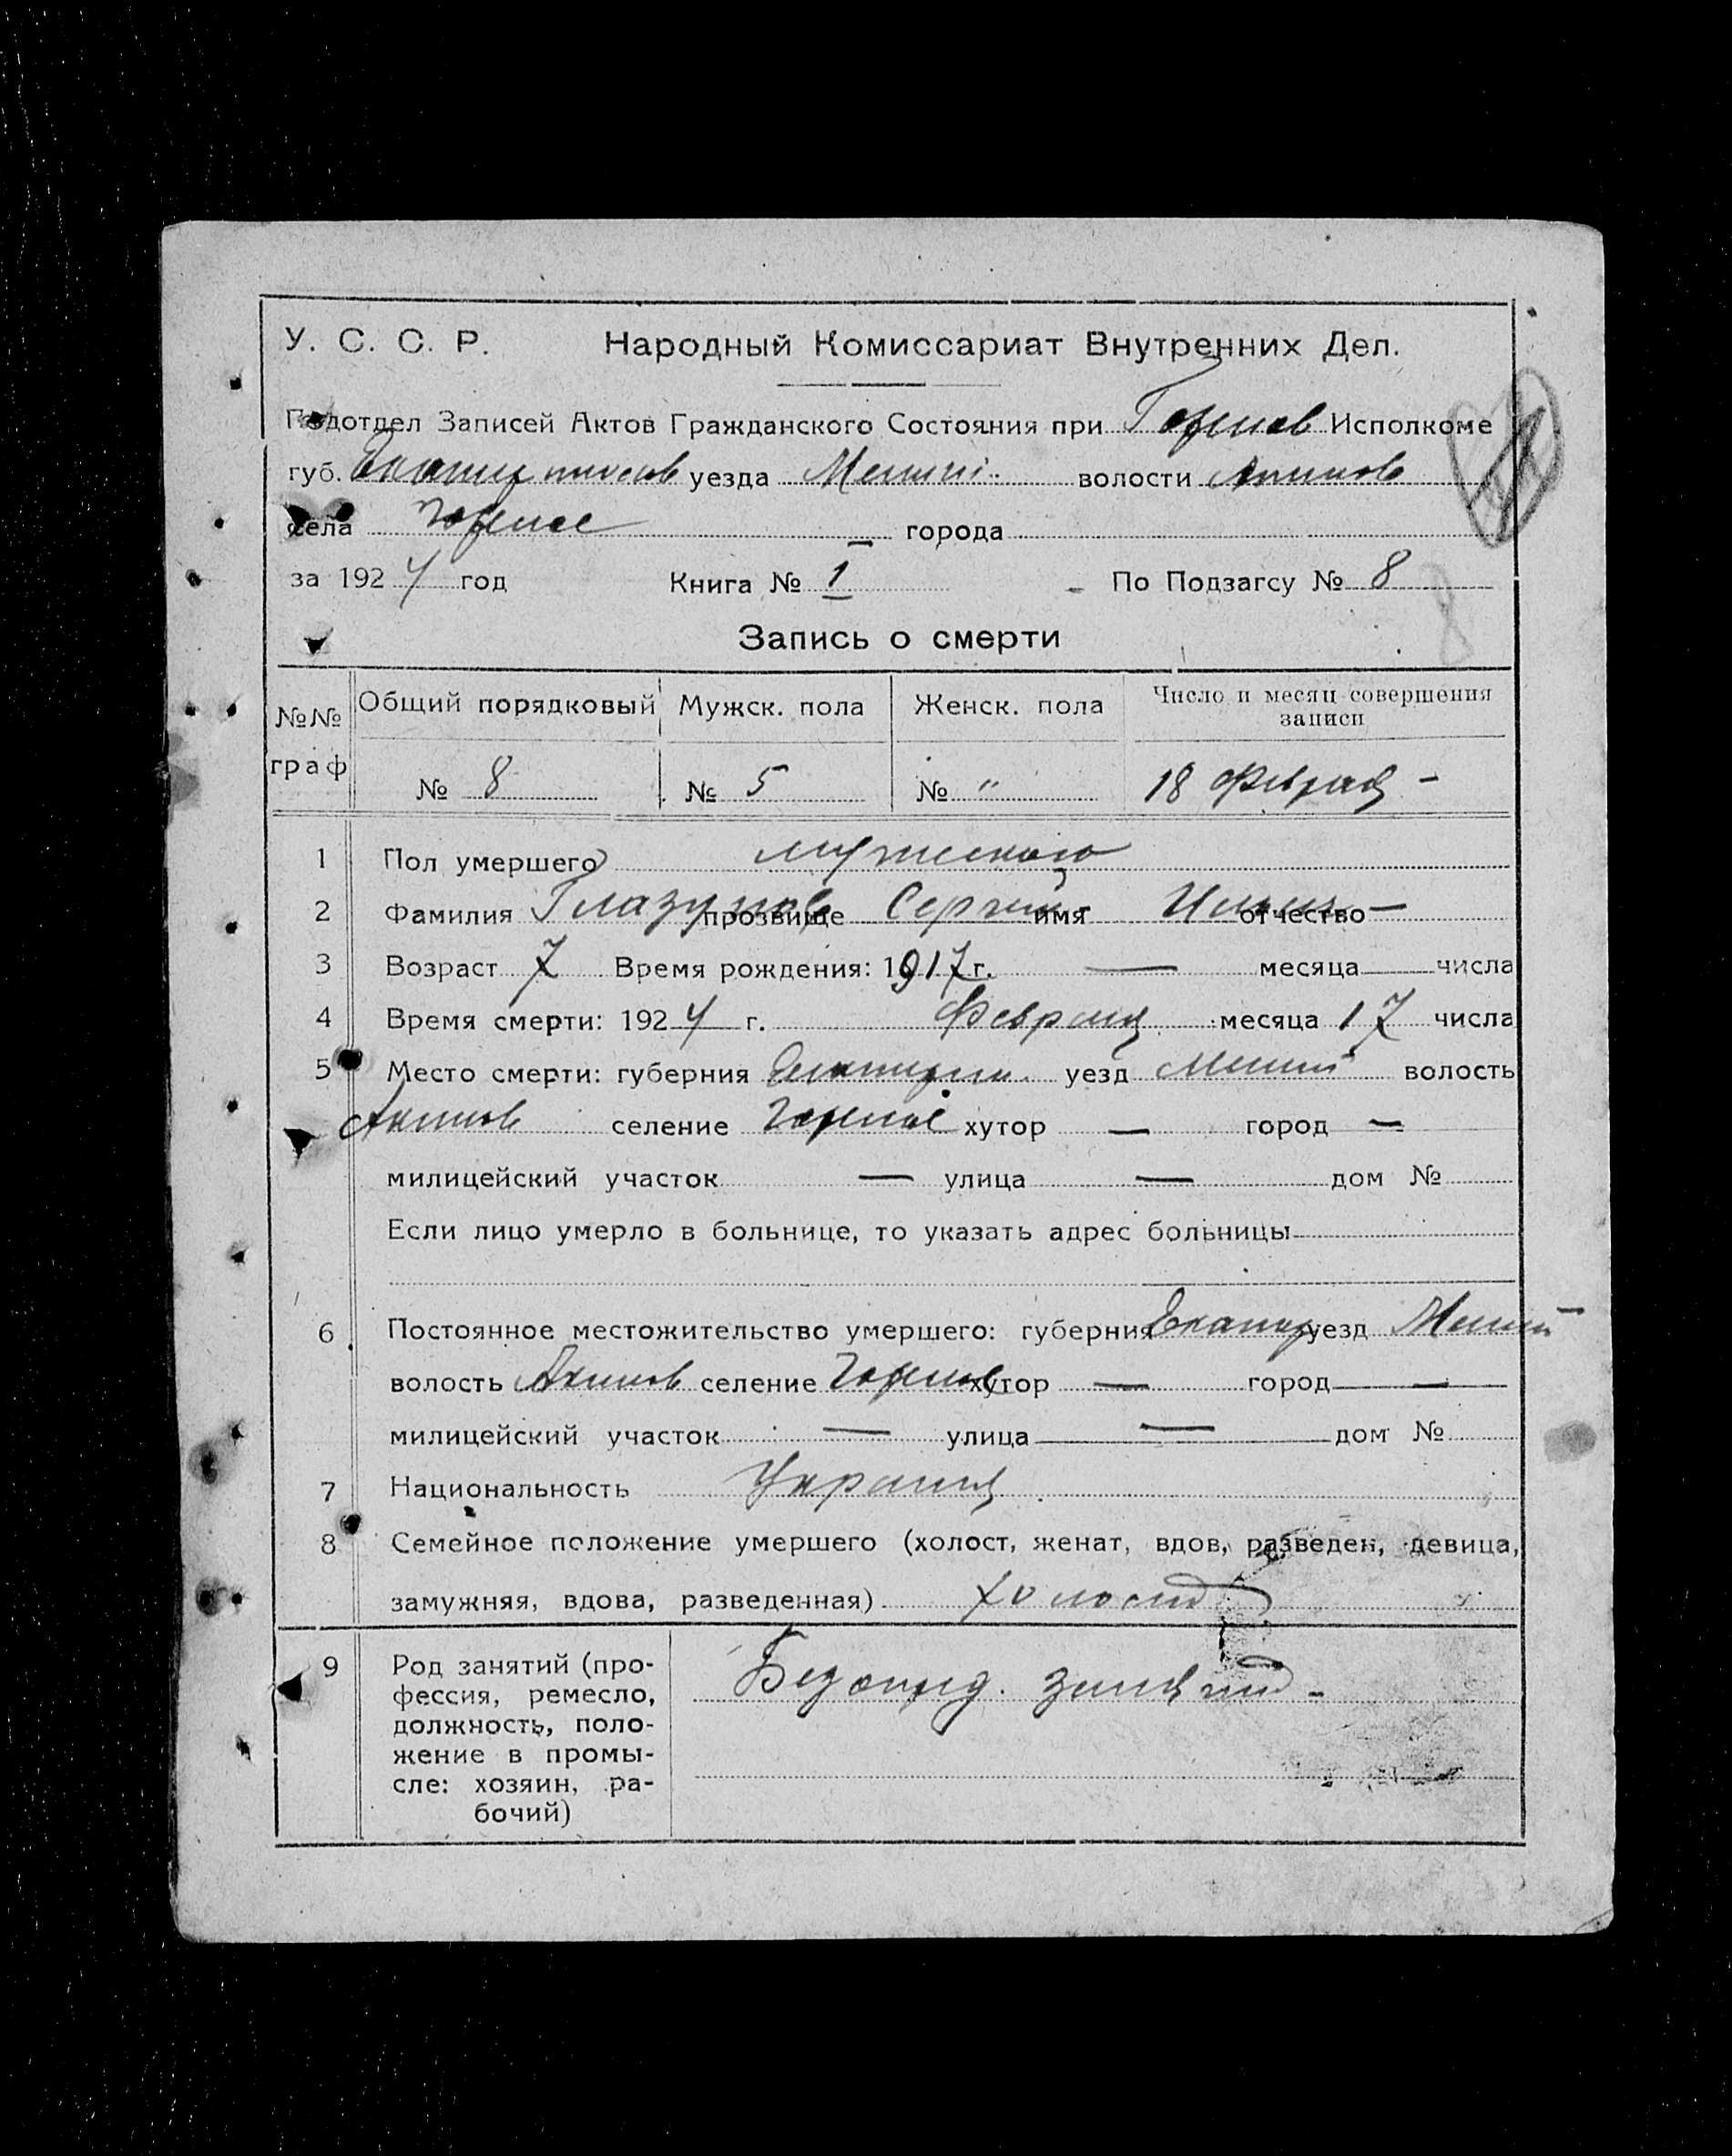 У. С. С. Р. Народный Комиссариат Внутренних Дел.
Подотдел Записей Актов Гражданского Состояния при Исполкоме
губ. уезда волости
села города
за 1924 год Книга № 1 По Подзагсу № 8
Запись о смерти
№№ граф Общий порядковый Мужск. пола Женск. пола Число и месяц совершения записи
№ 8 № 5 № " 18 Февраля -
1 Пол умершего мужского
2 Фамилия Глазунов прозвище Сергий имя отчество —
3 Возраст 7 Время рождения: 1917 г. — месяца числа
4 Время смерти: 1924 г. Февраля месяца 17 числа
5 Место смерти: губерния уезд волость
Акимов селение хутор — город —
милицейский участок — улица — дом №
Если лицо умерло в больнице, то указать адрес больницы
6 Постоянное местожительство умершего: губерния Екатер уезд
волость Акимов селение хутор — город —
милицейский участок — улица — дом №
7 Национальность Украин
8 Семейное положение умершего (холост, женат, вдов, разведен, девица,
замужняя, вдова, разведенная) холост
9 Род занятий (про-
фессия, ремесло,
должность, поло-
жение в промы-
сле: хозяин, ра-
бочий)